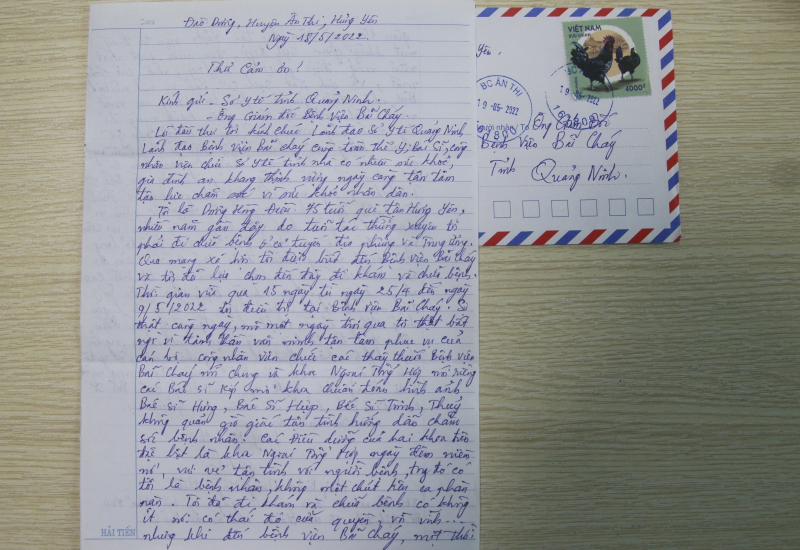 Đào Dương, Huyện Ân Thi, Hưng Yên
Ngày 18/5/2022
Thư Cảm ơn!
Kính gửi - Sở Y tế Tỉnh Quảng Ninh.
- Ông Giám đốc Bệnh Viện Bãi Cháy.
Lời đầu thư tôi kính chúc Lãnh đạo Sở Y tế Quảng Ninh
Lãnh đạo Bệnh Viện Bãi Cháy cùng toàn thể Y, Bác Sĩ, công
nhân viên chức Sở Y tế tỉnh nhà có nhiều sức khoẻ,
gia đình an khang thịnh vượng ngày càng tận tâm
tận lực chăm sóc vì sức khoẻ nhân dân.
Tôi là Dương Hồng Điều 75 tuổi quê tận Hưng Yên,
nhiều năm gần đây do tuổi tác thường xuyên tôi
phải đi chữa bệnh ở cả tuyến địa phương và Trung Ương.
Qua mạng xã hội tôi được biết đến Bệnh Viện Bãi Cháy
và tôi đã lựa chọn đến đây để khám và chữa bệnh.
Thời gian vừa qua 15 ngày từ ngày 25/4 đến ngày
9/5/2022 tôi điều trị tại Bệnh Viện Bãi Cháy. Sự
thật càng ngày, mỗi một ngày trôi qua tôi thật bất
ngờ vì tinh thần văn minh tận tâm phục vụ của
cán bộ, công nhân viên chức các thầy thuốc Bệnh Viện
Bãi Cháy nói chung và khoa Ngoại Tổng Hợp nói riêng
các Bác sĩ khoa chuẩn đoán hình ảnh
Bác Sĩ Hưng, Bác Sĩ Hiệp, Bác Sĩ Trình, Thuỷ
không quản giờ giấc tận tình hướng dẫn chăm
sóc bệnh nhân. Các Điều dưỡng của hai khoa trên
đặc biệt là khoa Ngoại Tổng Hợp ngày đêm niềm
nở, vui vẻ tận tình với người bệnh, trong đó có
tôi là bệnh nhân, không một chút kêu ca phàn
nàn. Tôi đã đi khám và chữa bệnh có không
ít nơi có thái độ cửa quyền, vô
nhưng khi đến bệnh viện Bãi Cháy, một
HẢI TIẾN
VIỆT NAM
BƯU CHÍNH
4000đ
BC ÂN THI
19-05-2022
Yên.
Người nhận: To Ông Giám Đốc
Bệnh Viện Bãi Cháy
Tỉnh Quảng Ninh.